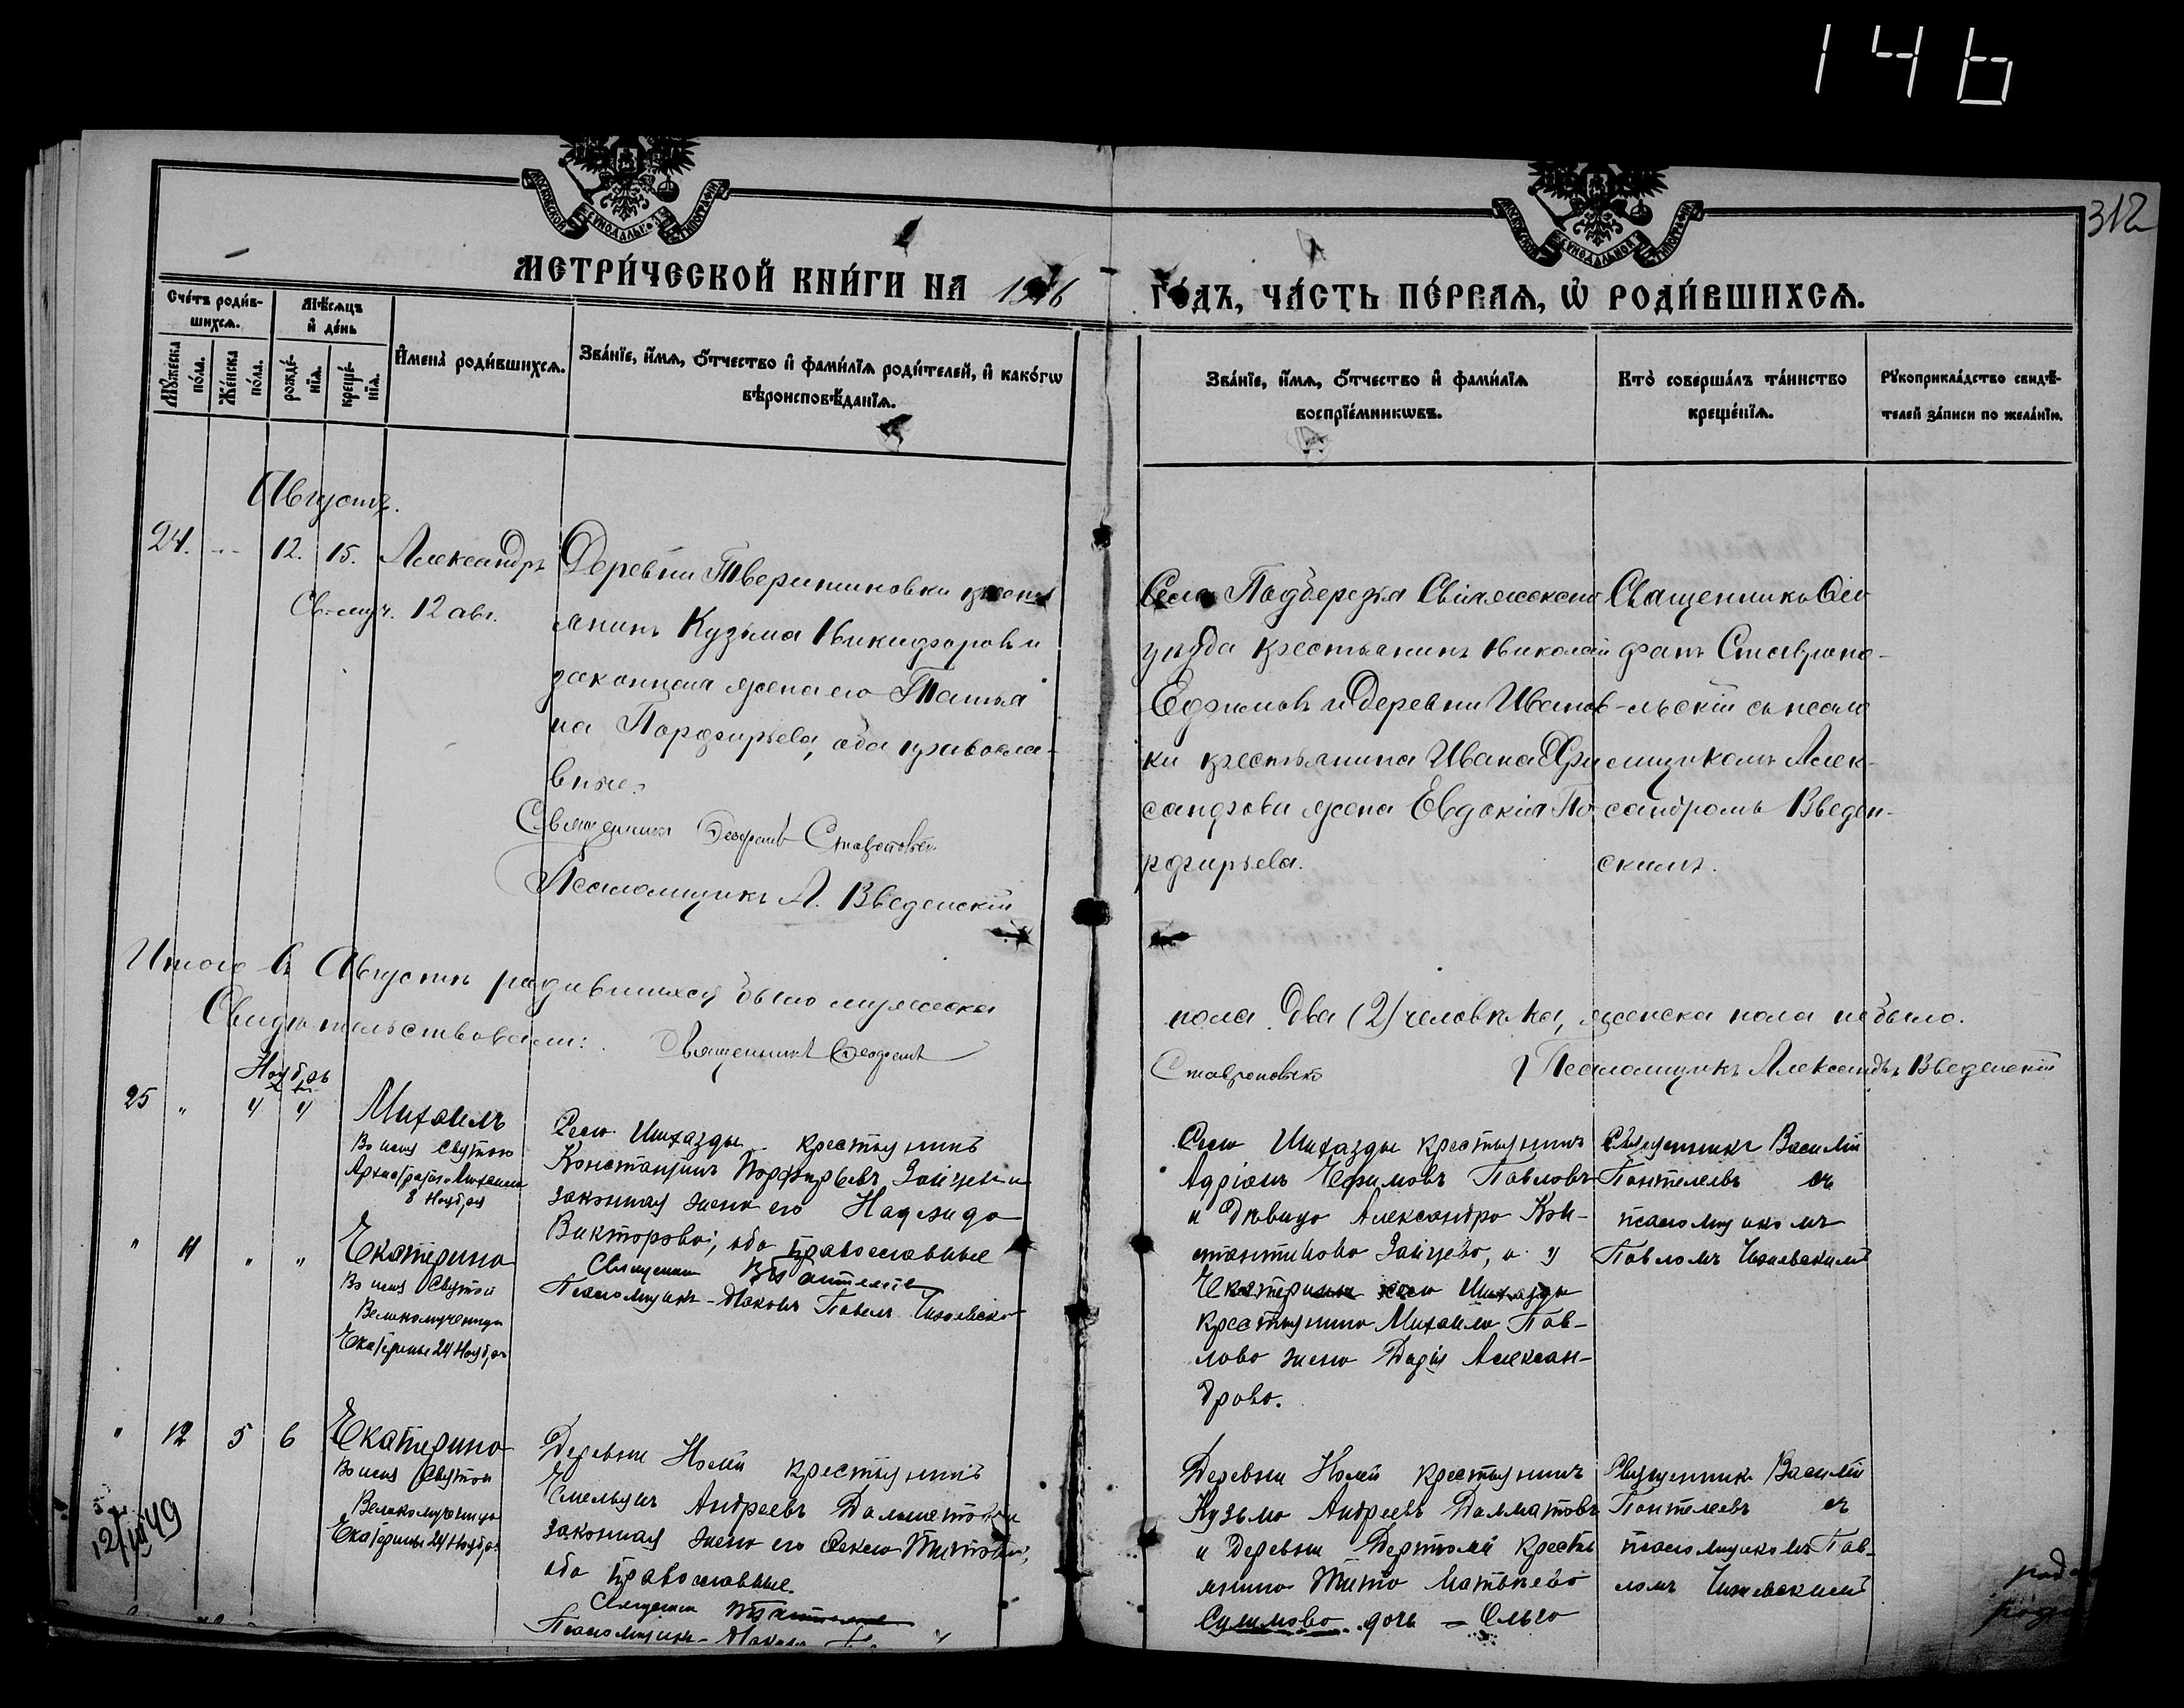 146
312
МОСКОВСКОЙ СѴНОДАЛЬНОЙ ТИПОГРАФІИ
МОСКОВСКОЙ СѴНОДАЛЬНОЙ ТИПОГРАФІИ
МЕТРИ́ЧЕСКОЙ КНИ́ГИ НА 1916 ГО́ДЪ, ЧА́СТЬ ПЕ́РВАѦ, Ѡ҆ РОДИ́ВШИХСѦ.
Сче́тъ роди́в-
шихсѧ.
Мѣ́сѧцъ
и҆ де́нь
Мꙋ́жеска
по́ла.
Же́нска
по́ла.
рожде́-
нїѧ.
креще́-
нїѧ.
И҆мена̀ роди́вшихсѧ.
Зва́нїе, и҆́мѧ, ѻ҆́тчество и҆ фами́лїѧ роди́телей, и҆ како́гѡ
вѣроисповѣ́данїѧ.
Зва́нїе, и҆́мѧ, ѻ҆́тчество и҆ фами́лїѧ
воспрїе́мникѡвъ.
Кто̀ соверша́лъ та́инство
креще́нїѧ.
Рꙋкоприкла́дство свидѣ́-
телей за́писи по жела́нїю.
Августъ.
24. -- 12. 15. Александръ
Св. муч. 12 авг.
Деревни Тверитиновки кресть
янинъ Кузьма Никифоровъ и
законная жена его Татья
на Порфирьева, оба правосла-
вные.
Священникъ Ѳеофанъ Ставропольскій
Псаломщикъ А. Введенскій
Села Подберезья Свіяжскаго
уѣзда крестьянинъ Николай
Ефимовъ и деревни Иванов-
ки крестьянина Ивана
жена Евдокія По-
рфирьева.
Священникъ Ѳео
фанъ Ставропо-
льскій съ псало
мщикомъ Алек-
сандромъ Введен-
скимъ.
Итого въ Августѣ родившихся было мужеска
пола два (2) человѣка, женска пола не было.
Свидѣтельствовали: Священникъ Ѳеофанъ
Ставропольскій Псаломщикъ Александръ Введенскій
Ноябрь
25 " 4 4 Михаилъ
Во имя Святого
Архистратига Михаила
8 Ноября
Село Шихазды крестьянинъ
Константинъ Порфирьевъ Зайцевъ и
законная жена его Надежда
Викторова, оба православные
Священникъ В. Пантелеевъ
Псаломщикъ-Діаконъ Павелъ
Село Шихазды крестьянинъ
Адріанъ Ефимовъ Павловъ
и дѣвица Александра Кон-
стантинова Зайцева, а у
Екатерины село Шихазды
крестьянина Михаила Пав-
лова жена Дарія Алексан-
дрова.
Священникъ Василій
Пантелеевъ съ
псаломщикомъ
Павломъ
" 11 " " Екатерина
Во имя Святой
Великомученицы
Екатерины 24 Ноября
" 12 5 6 Екатерина
Во имя Святой
Великомученицы
Екатерины 24 Ноября
Деревни крестьянинъ
Емельянъ Андреевъ Далматовъ и
законная жена его Ѳекла Титова,
оба православные.
Священникъ В. Пантелеевъ
Псаломщикъ-Діаконъ
Деревни крестьянинъ
Кузьма Андреевъ Далматовъ
и деревни кресть
янина Тита Матвѣева
дочь – Ольга
Священникъ Василій
Пантелеевъ съ
псаломщикомъ Пав-
ломъ